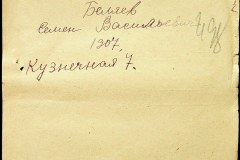 Беляев
Семен Васильевич
1907.
Кузнечная 7.